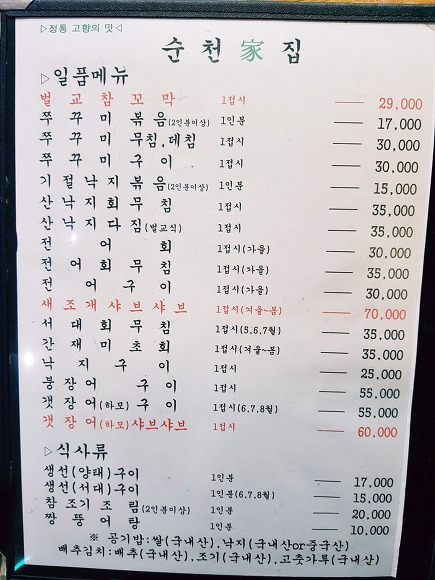 ▷정통 고향의 맛◁
순천家집
▷일품메뉴
벌교참꼬막 1접시 29,000
쭈꾸미볶음(2인분이상) 1인분 17,000
쭈꾸미 무침,데침 1접시 30,000
쭈꾸미구이 1접시 30,000
기절낙지볶음(2인분이상) 1인분 15,000
산낙지회무침 1접시 35,000
산낙지다짐(벌교식) 1접시 35,000
전어회 1접시(가을) 30,000
전어회무침 1접시(가을) 35,000
전어구이 1접시(가을) 30,000
새조개샤브샤브 1접시(겨울~봄) 70,000
서대회무침 1접시(5,6,7월) 35,000
간재미초회 1접시(겨울~봄) 35,000
낙지구이 1접시 25,000
붕장어구이 1접시 55,000
갯장어(하모)구이 1접시(6,7,8월) 55,000
갯장어(하모)샤브샤브 1접시 60,000
▷식사류
생선(양태)구이 1인분 17,000
생선(서대)구이 1인분(6,7,8월) 15,000
참조기조림(2인분이상) 1인분 20,000
짱뚱어탕 1인분 10,000
※ 공기밥:쌀(국내산),낙지(국내산or중국산)
배추김치:배추(국내산),조기(국내산),고춧가루(국내산)